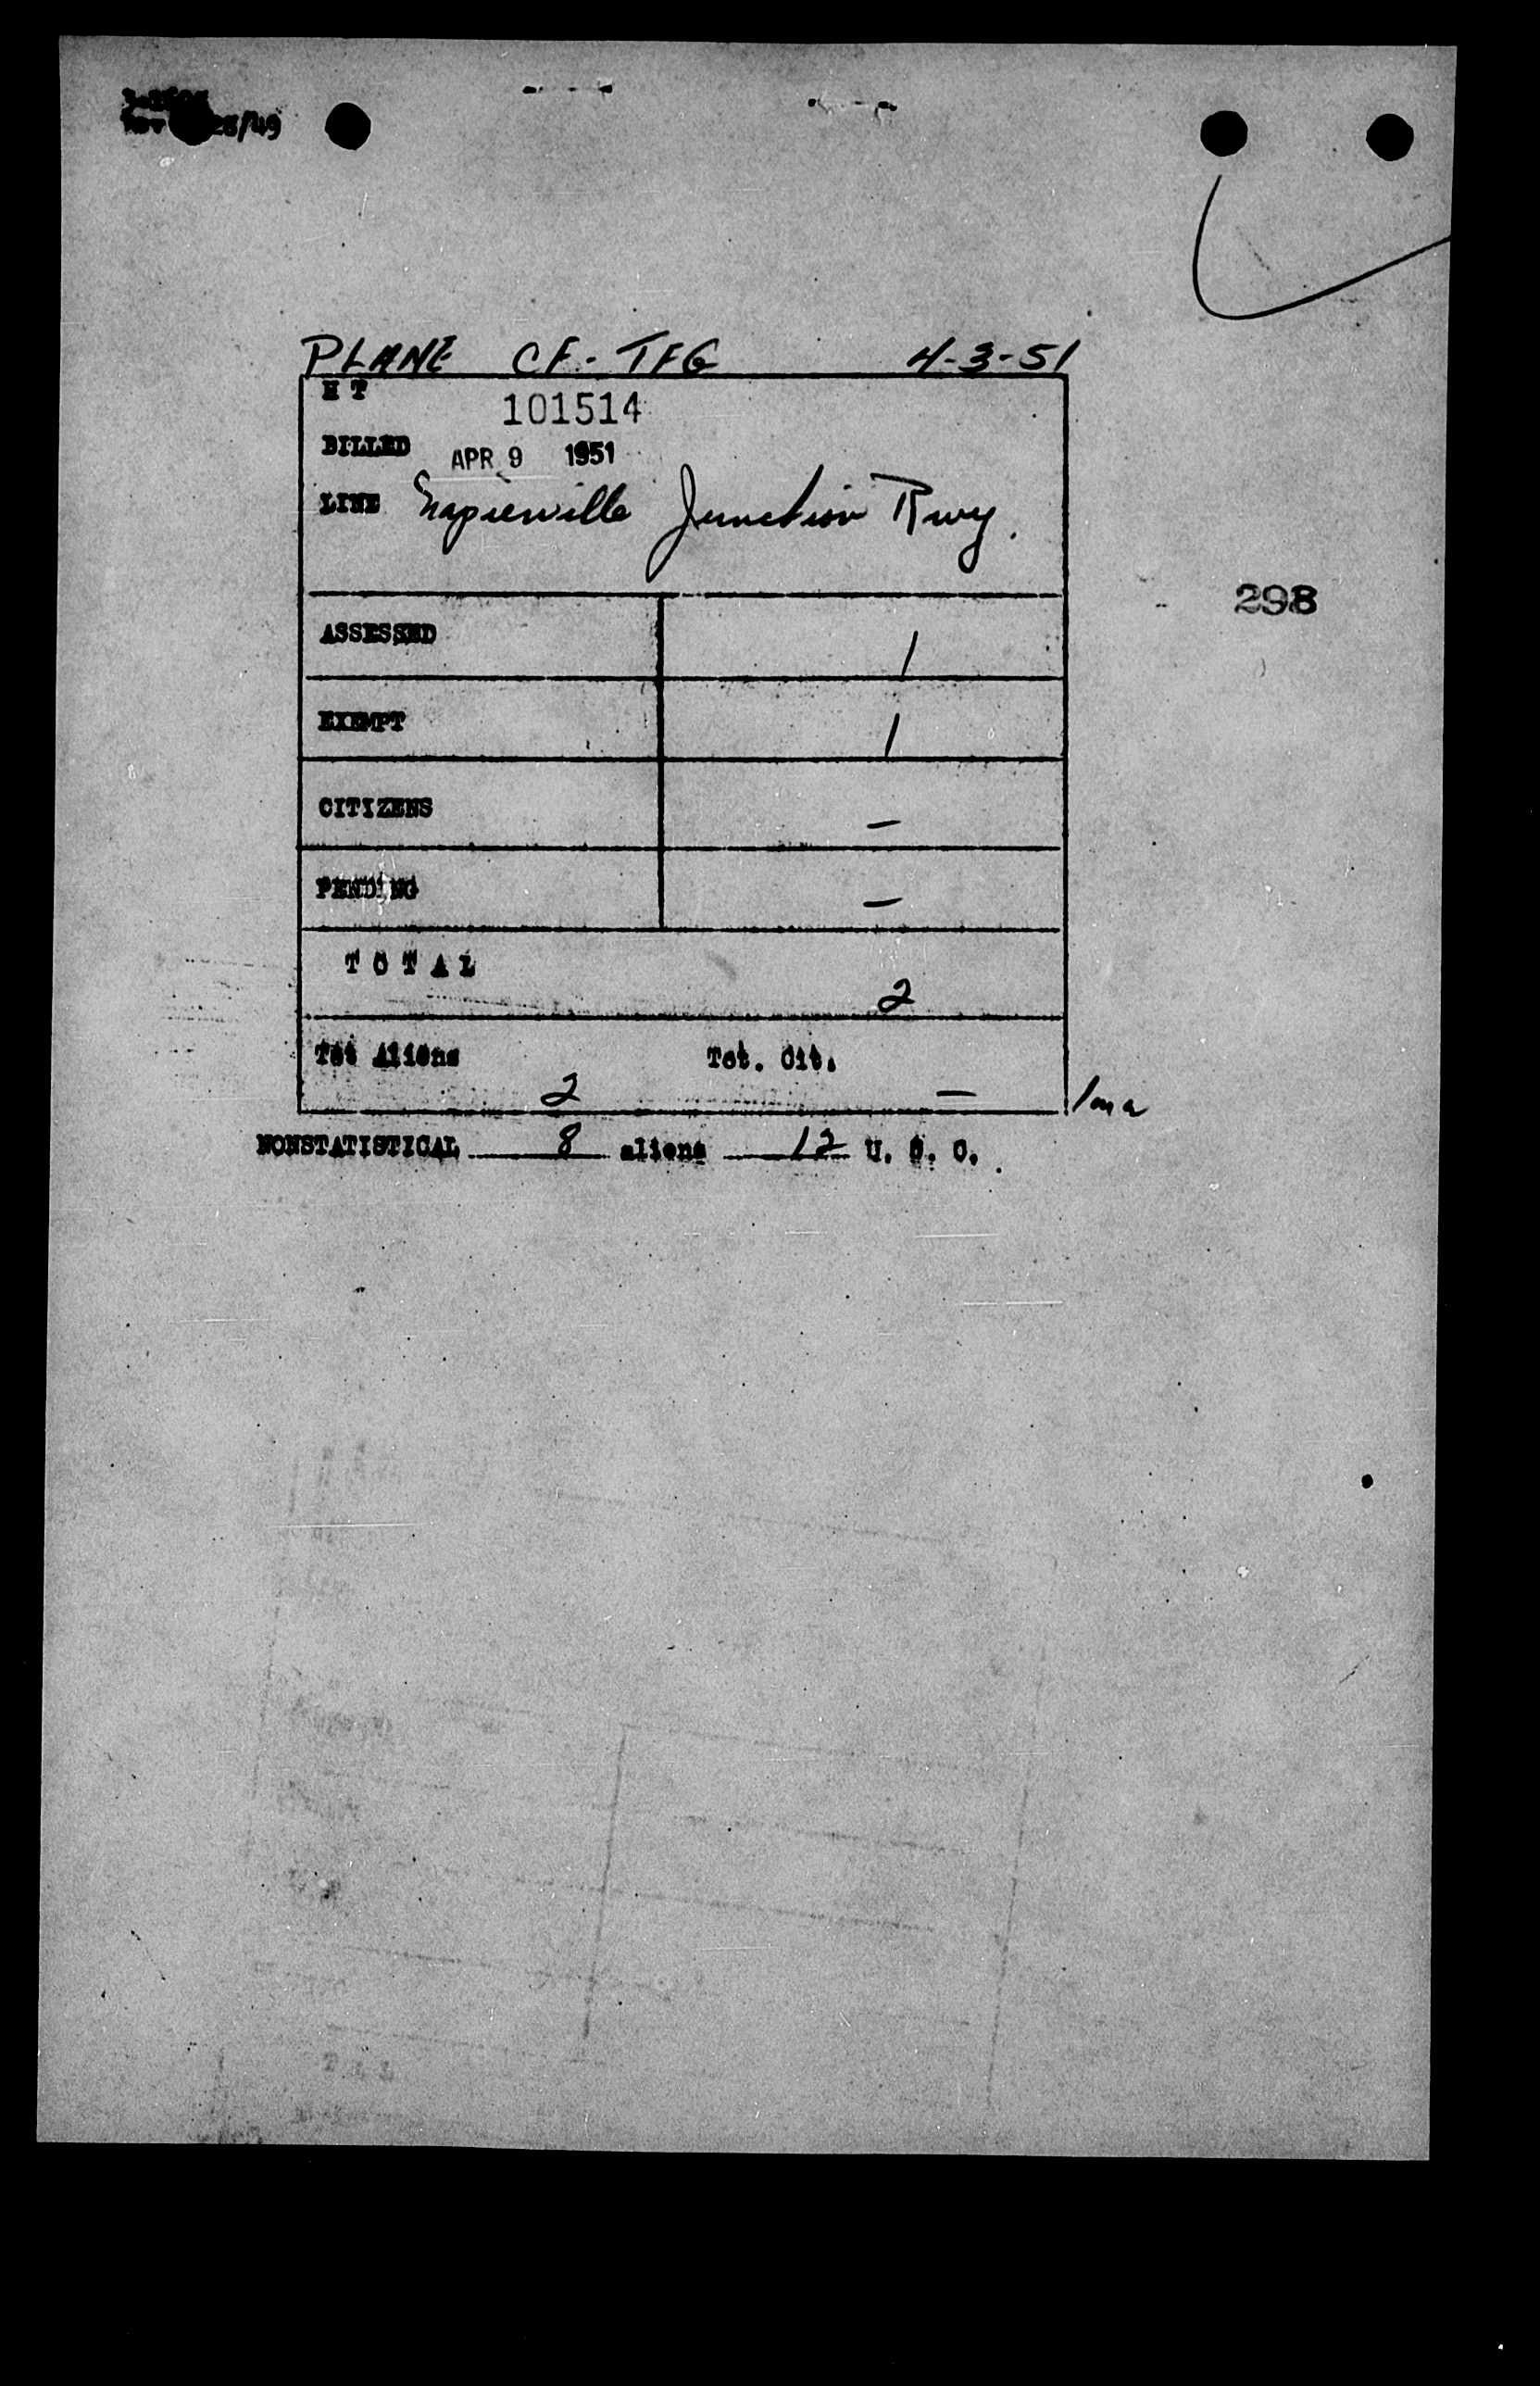 28/49
PLANE CF-TFG 4-3-51
H T 101514
BILLED APR 9 1951
LINE Napierville Junction Rwy.
298
ASSESSED 1
EXEMPT 1
CITIZENS —
PENDING —
TOTAL 2
Tot Aliens 2 Tot. Cit. —
NONSTATISTICAL 8 aliens 12 U. S. C.